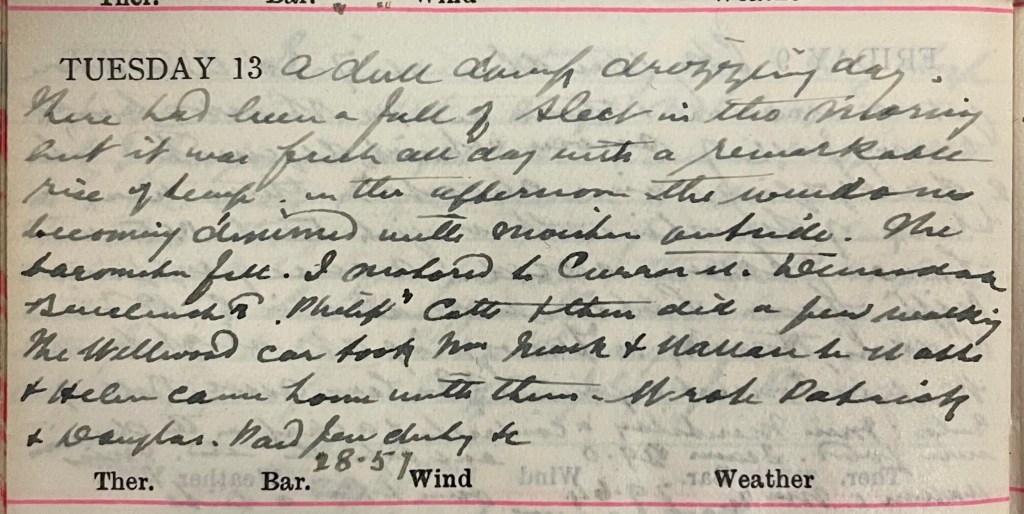 Ther. Bar. Wind Weather
TUESDAY 13 A dull damp drozzying day.
There had been a fall of sleet in the morning
but it was fresh all day with a remarkable
rise of temp. in the afternoon the windows
becoming dimmed with moisture outside. The
barometer fell. I motored to Curror St.
Philip Cotts & then did a few
The Wellwood car took &
& Helen came home with them. Wrote Patrick
& Douglas. Paid feu duty &c
28.57
Ther. Bar. Wind Weather